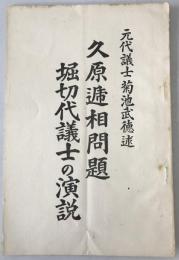 元代議士菊池武徳述
久原逓相問題
堀切代議士の演説